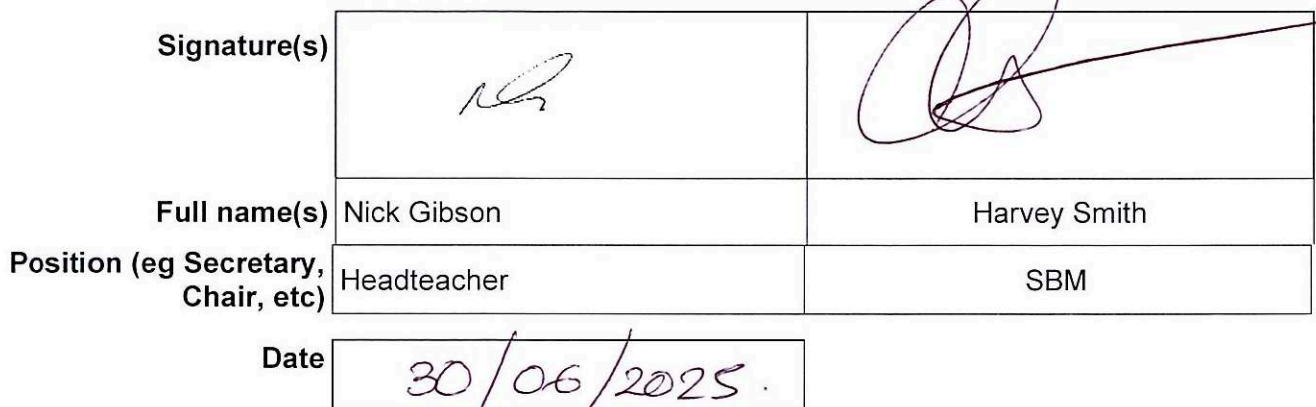 Signature(s)
Full name(s) Nick Gibson Harvey Smith
Position (eg Secretary,
Chair, etc) Headteacher SBM
Date 30/06/2025.